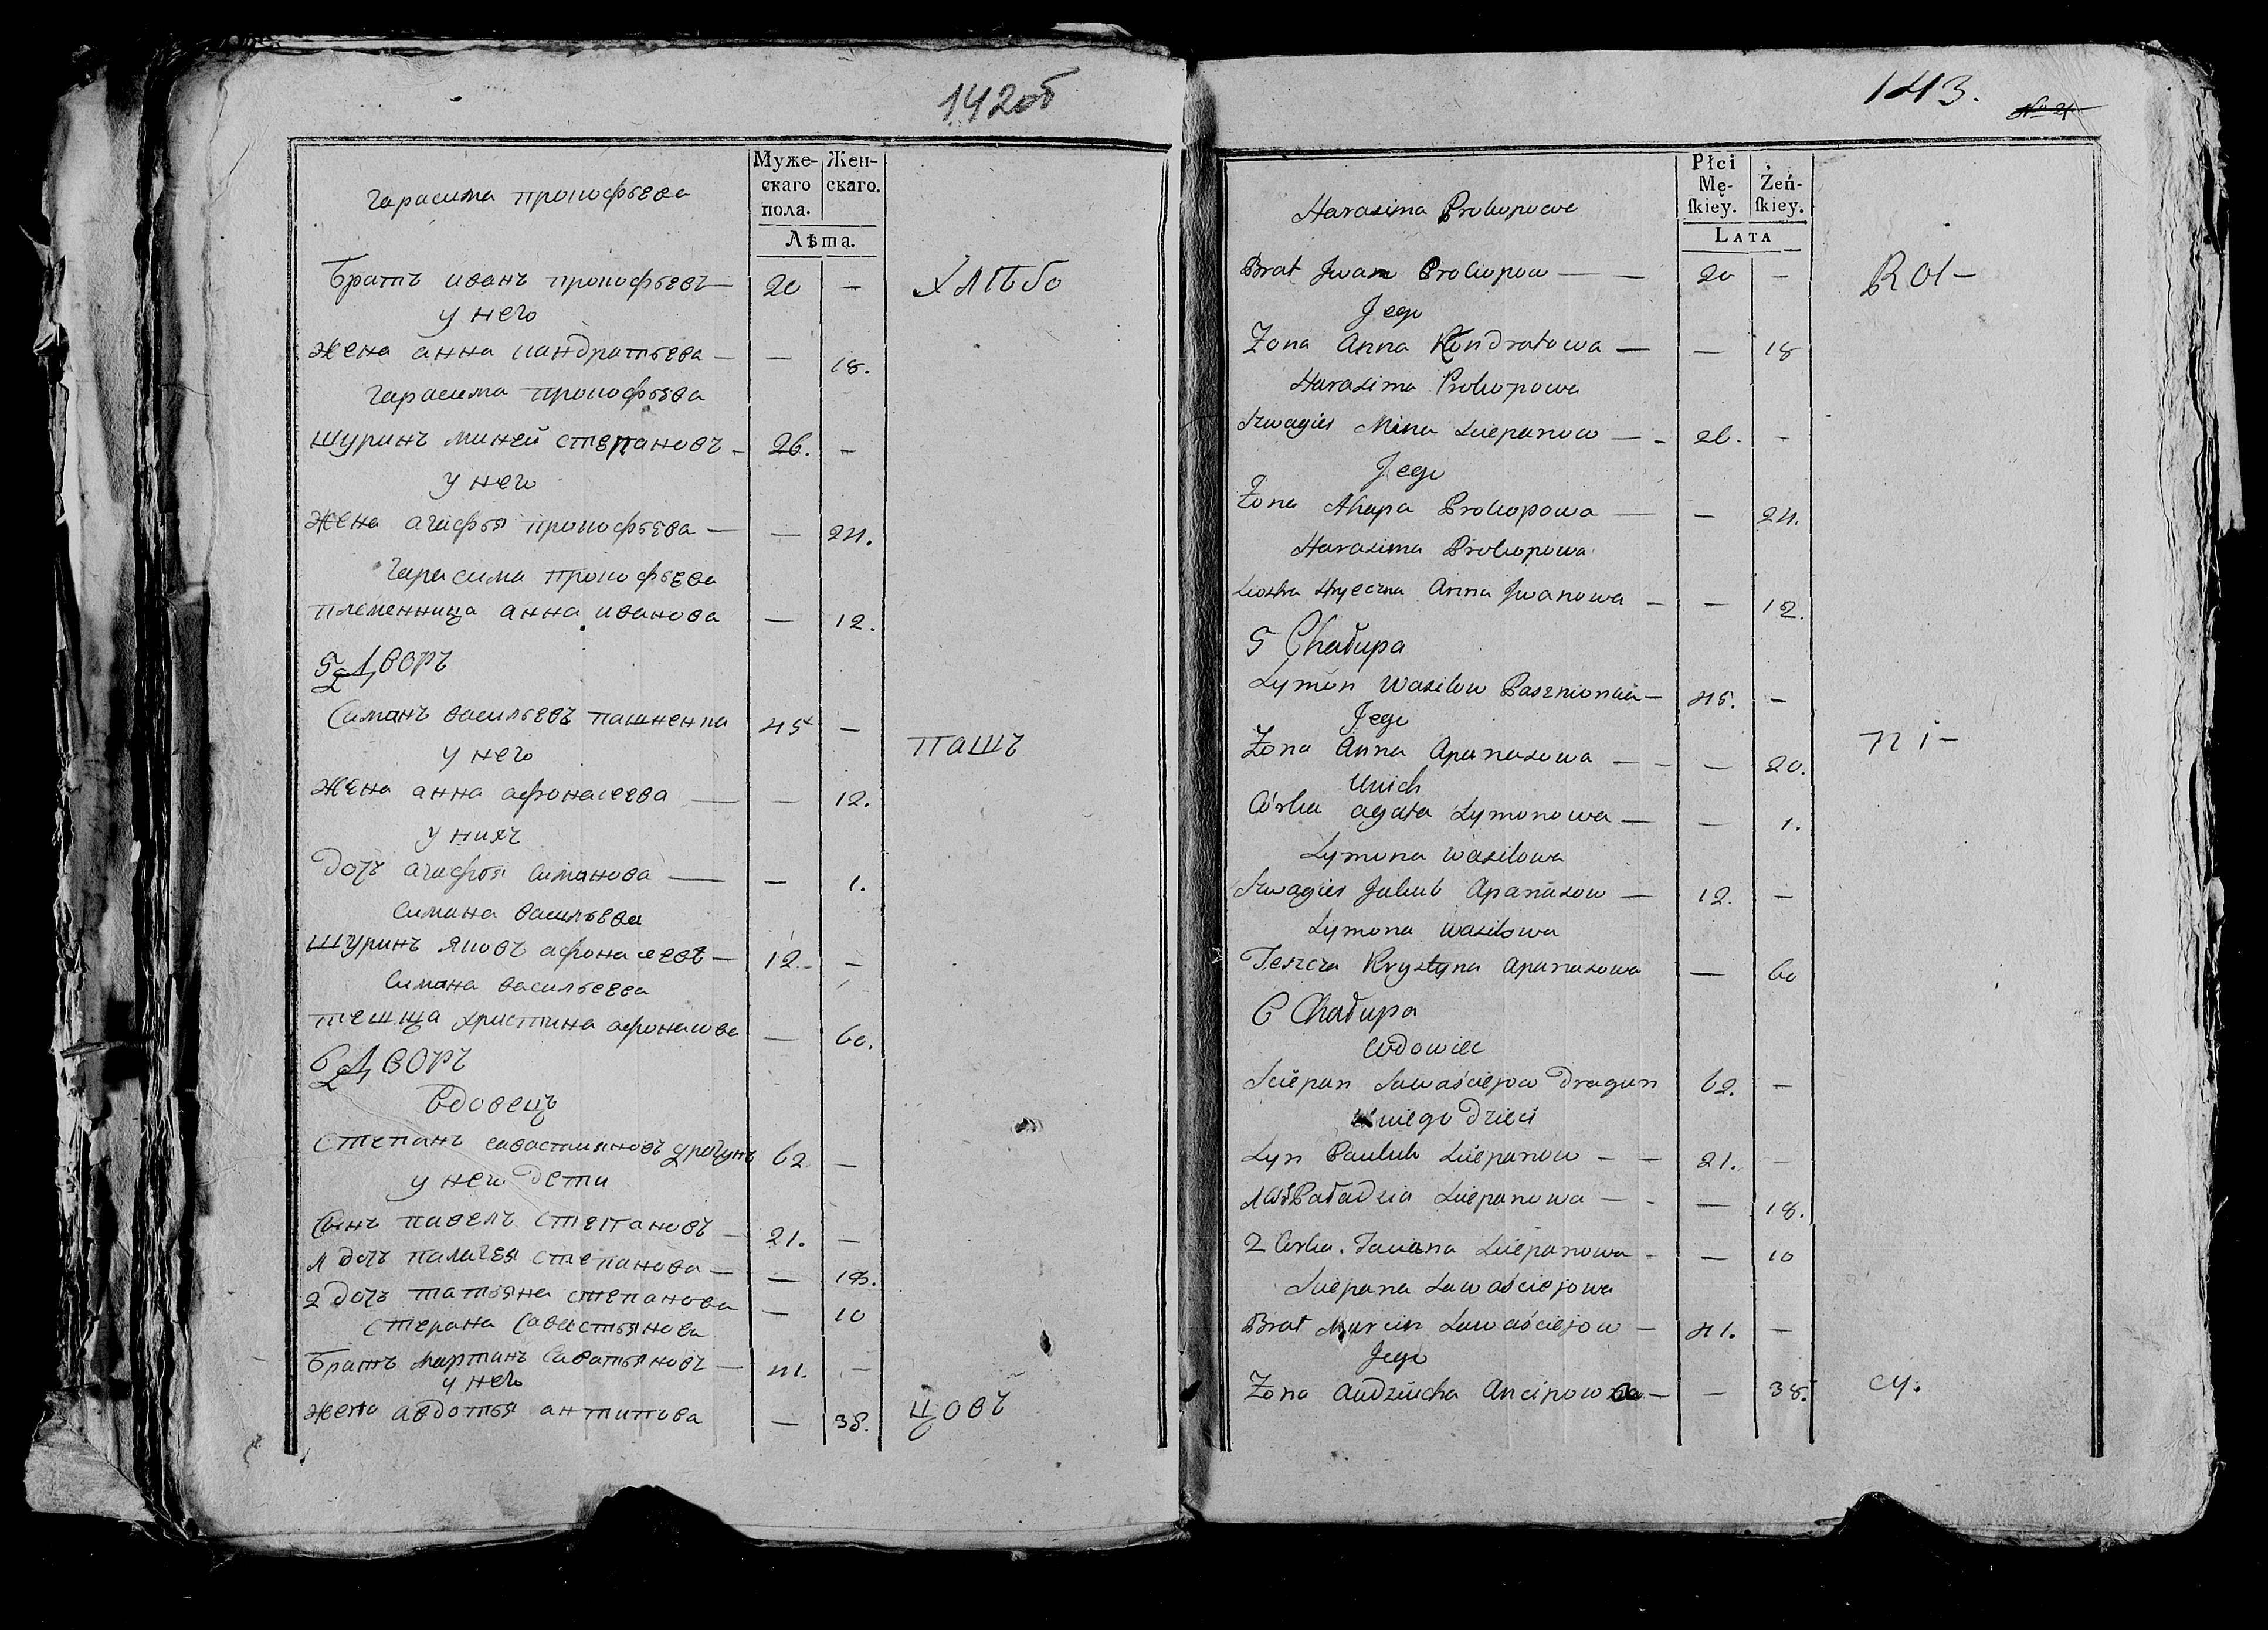 142об
Муже-
скаго
пола.
Жен-
скаго.
Лѣта.
Гарасима прокофьева
Братъ иванъ прокофьевъ — 20 —
у него
жена анна кандратьева — — 18.
Гарасима прокофьева
шуринъ миней степановъ — 26. —
у него
жена агафья прокофьева — — 24.
Гарасима прокофьева
племенница анна иванова — 12.
5 Дворъ
Симанъ васильевъ пашненка 45 —
у него
жена анна афонасеева — — 12.
у нихъ
дочь агафья симанова — — 1.
Симана васильева
шуринъ яковъ афонасеевъ — 12. —
Симана васильева
тешща христина афонасова — 60.
6 Дворъ
Вдовецъ
Степанъ савастиановъ драгунъ 62 —
у него дети
Сынъ павелъ степановъ — 21. —
1 дочь палагея степанова — — 18.
2 дочь татьяна степанова — 10
степана савастьянова
братъ мартинъ саватьяновъ — 41. —
у него
жена авдотья антипова — 38.
ХЛѢБО
ПАШЪ
ЦОВЪ
143.
№ 21
Płci
Mę-
ſkiey.
Żeń-
ſkiey.
LATA
Harasima Prokopowa
Brat Jwan Prokopow — — 20 —
Jego
Zona Anna Kondratowa — — 18
Harasima Prokopowa
Szwagier Mina Sciepanow — — 26. —
Jego
Zona Ahapa Prokopowa — — 24.
Harasima Prokopowa
Siostra Stryeczna Anna Jwanowa — — 12.
5 Chałupa
Symon Wasilow Pasznionka — 45. —
Jego
Zona Anna Apanasowa — — — 20.
Unich
Córka agata Symonowa — — 1.
Symona Wasilowa
Szwagier Jakub Apanasow — 12. —
Symona Wasilowa
Teszcza Krystyna Apanasowa — 60
6 Chałupa
Wdowiec
Sciepan Sawaściejow Dragun 62. —
u niego Dzieci
Syn Pauluk Sciepanow — — 21. —
1 Cór Paładzia Sciepanowa — — — 18.
2 Corka. Taciana Sciepanowa — — 10
Sciepana Sawaściejowa
Brat Marcin Sawaściejow — 41. —
Jego
Zona Audziucha Ancipowa — — 38.
ROL-
NI-
CY.